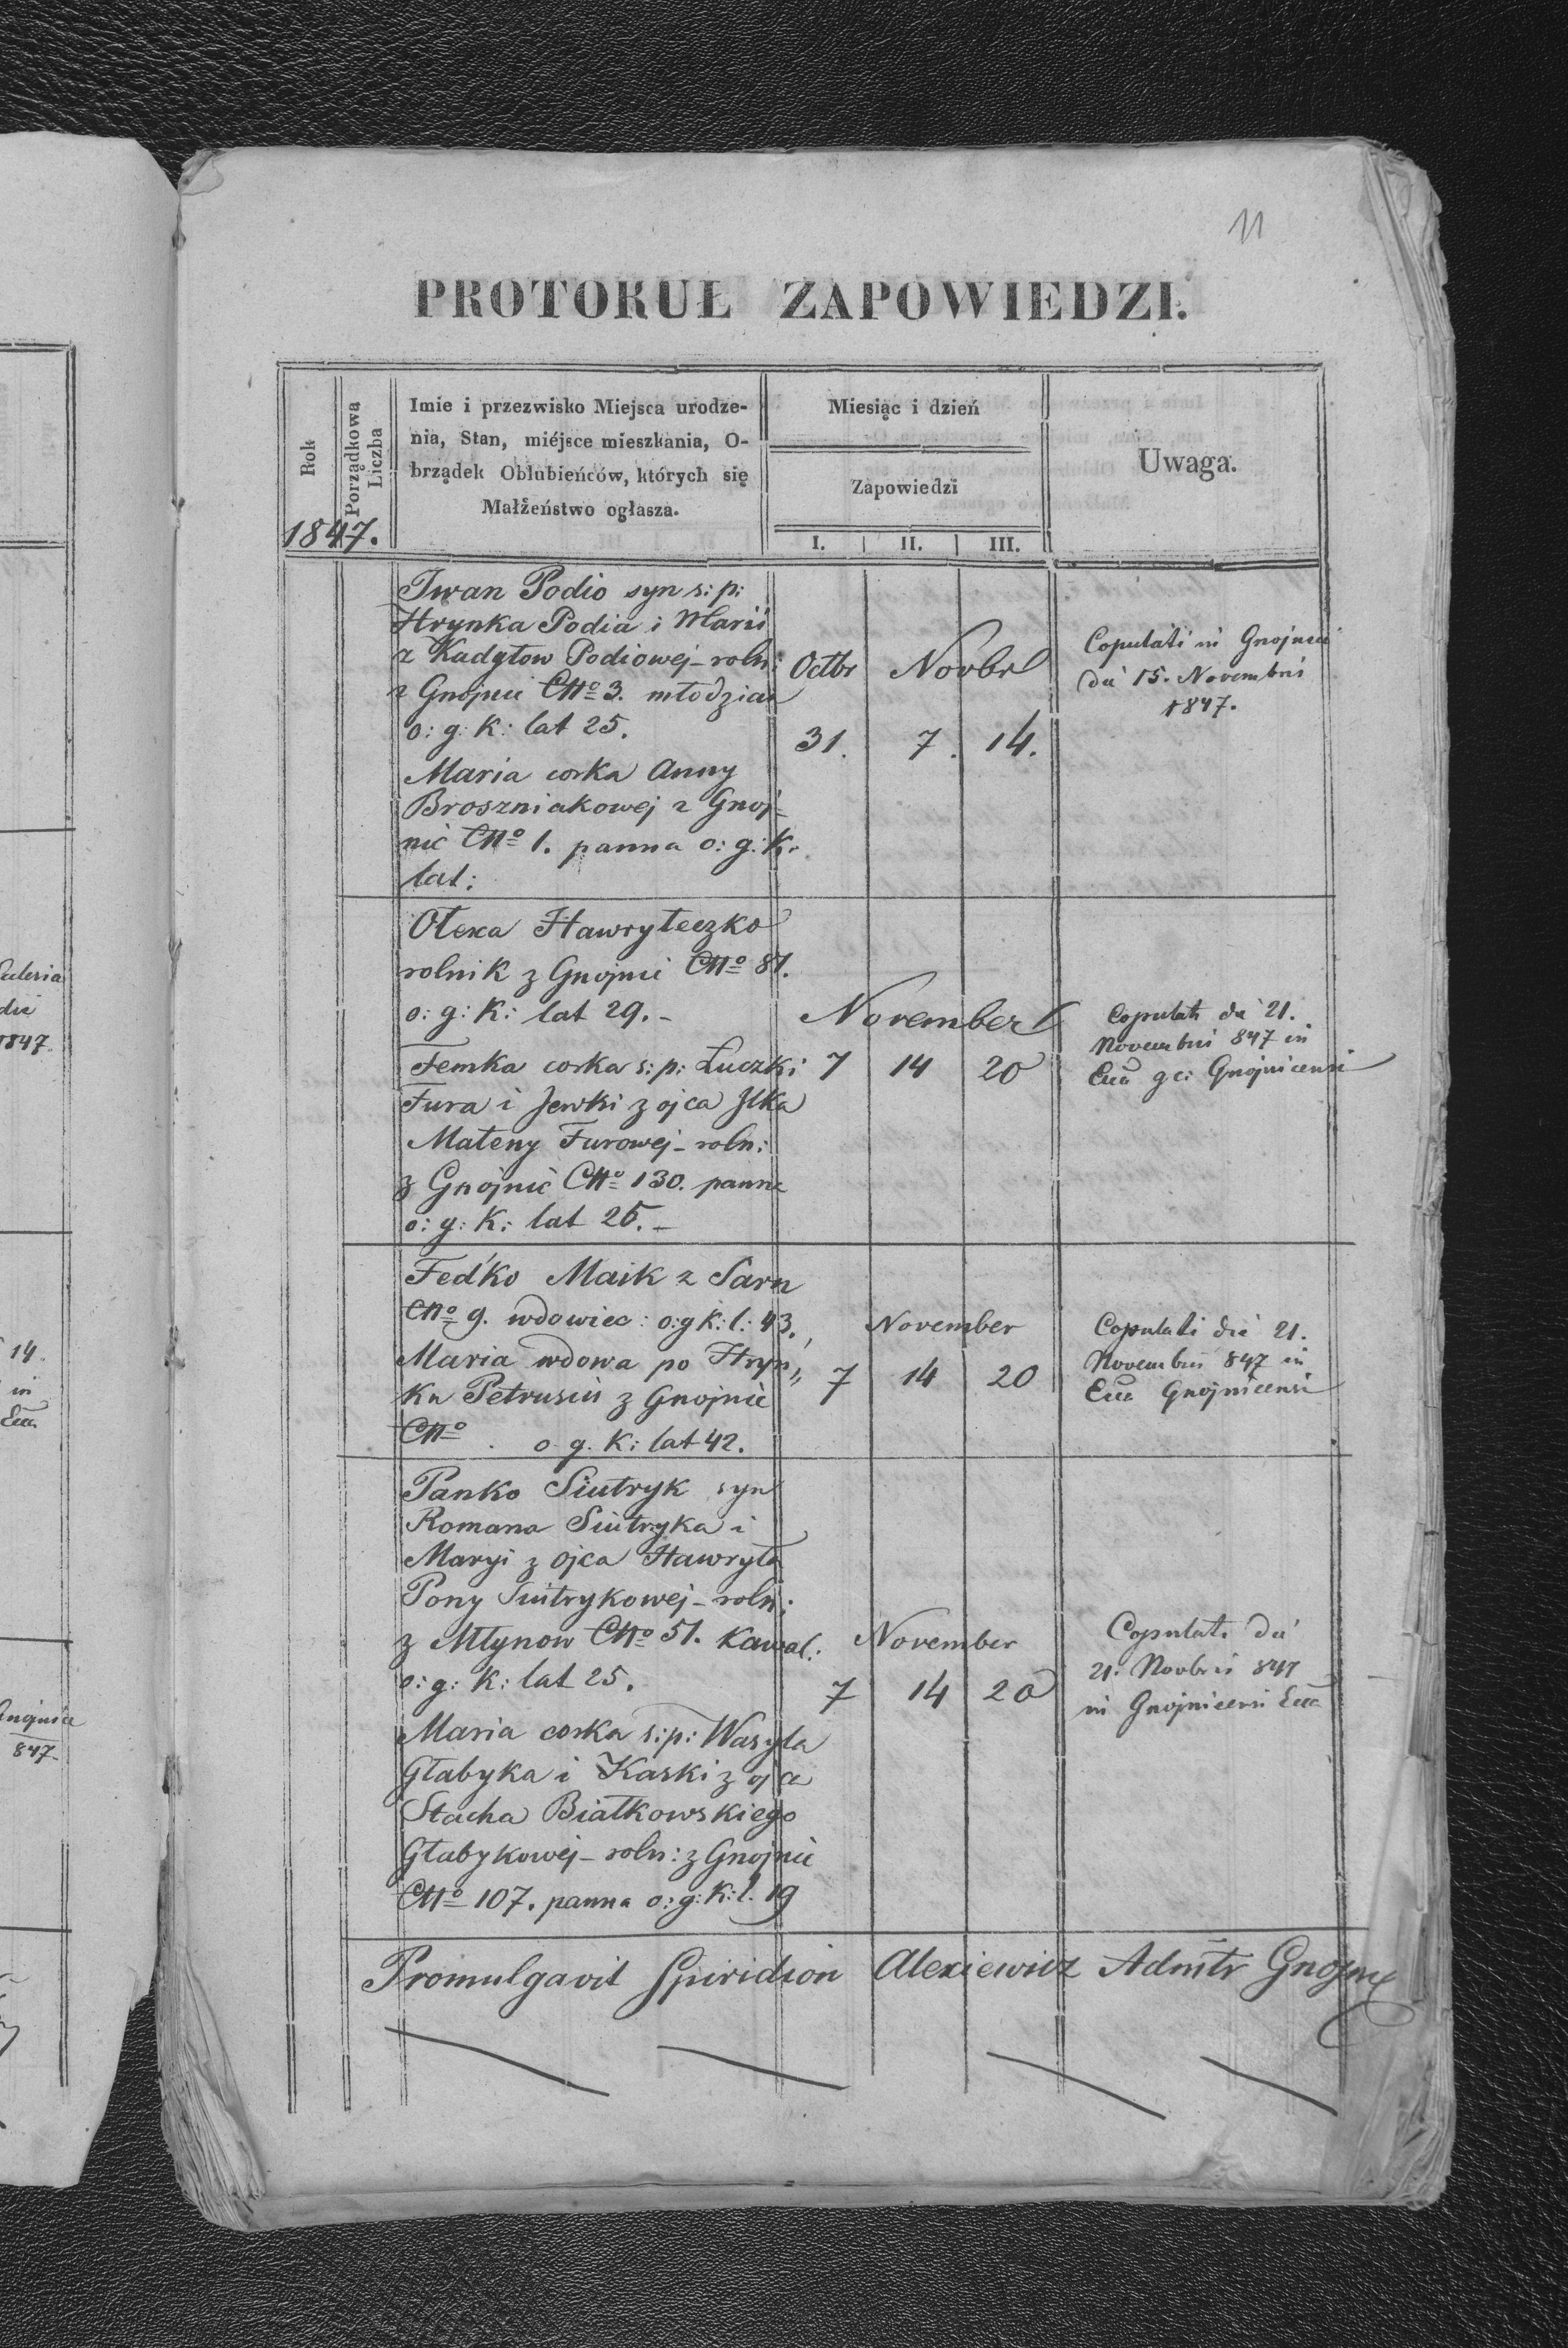 11
PROTOKUŁ ZAPOWIEDZI.
Rok
Porządkowa Liczba
Imie i przezwisko Miejsca urodze-
nia, Stan, miéjsce mieszkania, O-
brządek Oblubieńców, których się
Małżeństwo ogłasza.
Miesiąc i dzień
Zapowiedzi
I. II. III.
Uwaga.
1847.
Iwan Podio syn s: p:
Hrynka Podia i Marii
z Kadyłow Podiowej - roln:
z Gnojnic CNo 3. młodzian
o: g: k: lat 25.
Maria corka Anny
Broszniakowej z Gnoj-
nic CNo 1. panna o: g: k.
lat:
Octbr Novbr
31. 7. 14.
Copulati in Gnojnici
die 15. Novembris
1847.
Olexa Hawryleczko
rolnik z Gnojnic CNo 81.
o: g: k: lat 29. -
Femka corka s: p: Łuczki
Fura i Jewki z ojca Ilka
Mateny Furowej - roln:
z Gnojnic CNo 130. panna
o: g: k: lat 25. -
November
7 14 20
Copulati die 21.
Novembris 847 in
Ecca gc: Gnojnicensi
Fed'ko Maik z Sarn
CNo 9. wdowiec: o: g k: l: 43.
Maria wdowa po Hryń,,
ku Petrusiu z Gnojnic
CNo . o. g. k: lat 42.
November
7 14 20
Copulati die 21.
Novembris 847 in
Ecca Gnojnicensi
Panko Siutryk syn
Romana Siutryka i
Maryi z ojca Hawryła
Pony Siutrykowej - roln:
z Młynow CNo 51. Kawal:
o: g: k: lat 25.
Maria corka s: p: Wasyla
Głabyka i Kaski z ojca
Stacha Białkowskiego
Głabykowej - roln: z Gnojnic
CNo 107. panna o: g: k: l. 19
November
7 14 20
Copulati die
21. Novbris 847
in Gnojnicensi Ecca
Promulgavit Spiridion Alexiewicz Admtr Gnojnic
14.
in
die
1847.
847